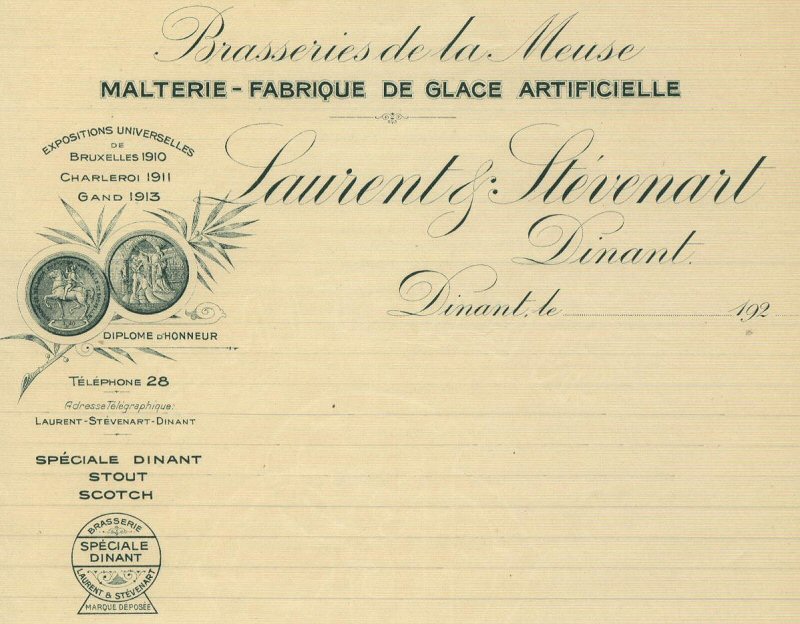 Brasseries de la Meuse
MALTERIE - FABRIQUE DE GLACE ARTIFICIELLE
EXPOSITIONS UNIVERSELLES
DE
BRUXELLES 1910
CHARLEROI 1911
GAND 1913
Laurent & Stévenart
Dinant.
Dinant, le 192
DIPLOME D'HONNEUR
TÉLÉPHONE 28
Adresse Télégraphique:
LAURENT-STÉVENART-DINANT
SPÉCIALE DINANT
STOUT
SCOTCH
BRASSERIE
SPÉCIALE
DINANT
LAURENT & STÉVENART
MARQUE DÉPOSÉE